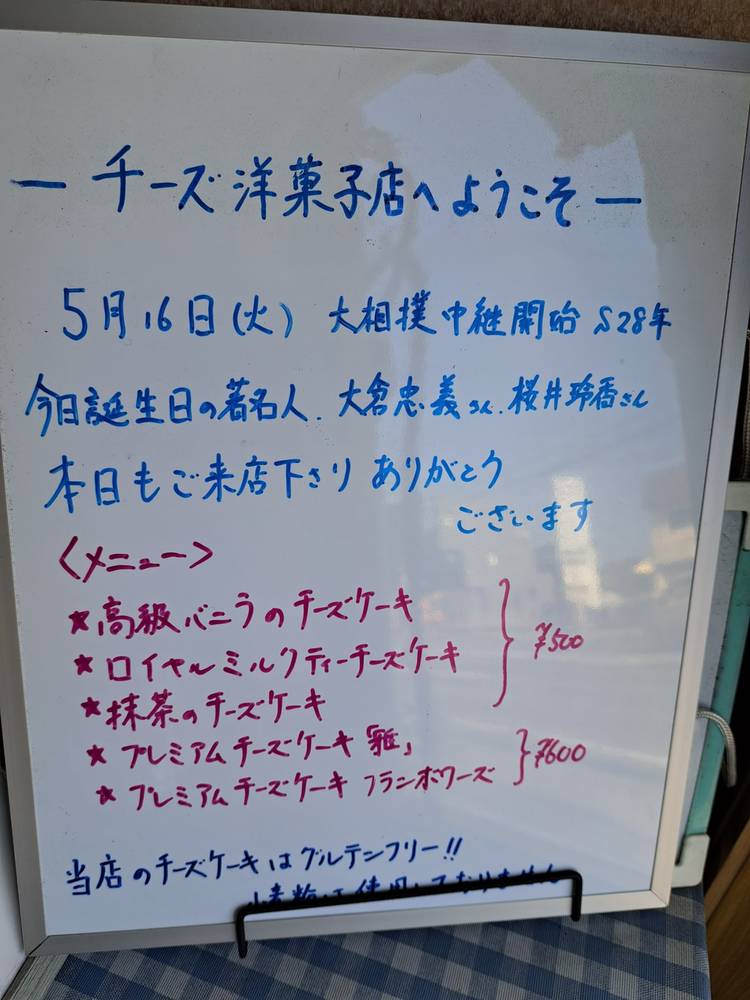 — チーズ洋菓子店へようこそ —
5月16日(火) 大相撲中継開始 S28年
今日誕生日の著名人、大倉忠義さん、桜井玲香さん
本日もご来店下さり ありがとう
ございます
<メニュー>
★高級バニラのチーズケーキ
★ロイヤルミルクティーチーズケーキ
★抹茶のチーズケーキ
¥500
★プレミアムチーズケーキ「雅」
★プレミアムチーズケーキ フランボワーズ
¥600
当店のチーズケーキはグルテンフリー!!
小麦粉は使用しておりません